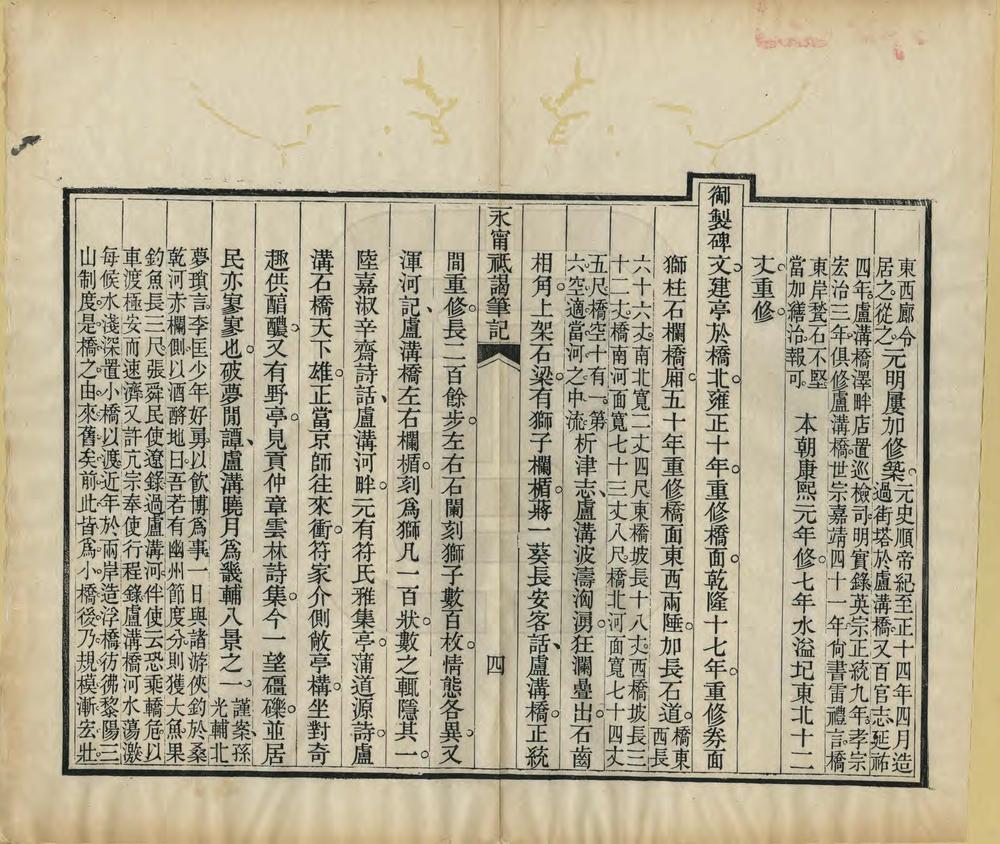 東西廊令
居之從之
元明屢加修築
元史順帝紀至正十四年四月造
過街塔於盧溝橋又百官志延祐
四年盧溝橋澤畔店置巡檢司明實錄英宗正統九年孝宗
宏治三年俱修盧溝橋世宗嘉靖四十一年尙書雷禮言橋
東岸甃石不堅
當加繕治報可
本朝康熙元年修七年水溢圮東北十二
丈重修
御製碑文建亭於橋北雍正十年重修橋面乾隆十七年重修券面
獅柱石欄橋廂五十年重修橋面東西兩陲加長石道
橋東
西長
六十六丈南北寬二丈四尺東橋坡長十八丈西橋坡長三
十二丈橋南河面寬七十三丈八尺橋北河面寬七十四丈
五尺橋空十有一第
六空適當河之中流
析津志盧溝波濤洶湧狂瀾疊出石齒
相角上架石梁有獅子欄楯蔣一葵長安客話盧溝橋正統
永甯祗謁筆記
四
間重修長二百餘步左右石闌刻獅子數百枚情態各異又
渾河記盧溝橋左右欄楯刻爲獅凡一百狀數之輒隱其一
陸嘉淑辛齋詩話盧溝河畔元有符氏雅集亭蒲道源詩盧
溝石橋天下雄正當京師往來衝符家介側敞亭構坐對奇
趣供醅醲又有野亭見貢仲章雲林詩集今一望礓礫並居
民亦寥寥也破夢閒譚盧溝曉月爲畿輔八景之一
謹案孫
光輔北
夢瑣言李匡少年好勇以飲博爲事一日與諸游俠釣於桑
乾河赤欄側以酒酹地曰吾若有幽州節度分則獲大魚果
釣魚長三尺張舜民使遼錄過盧溝河伴使云恐乘轎危以
車渡極安而速濟又許亢宗奉使行程錄盧溝橋河水蕩激
每候水淺深置小橋以渡近年於兩岸造浮橋彷彿黎陽三
山制度是橋之由來舊矣前此皆爲小橋後乃規模漸宏壯